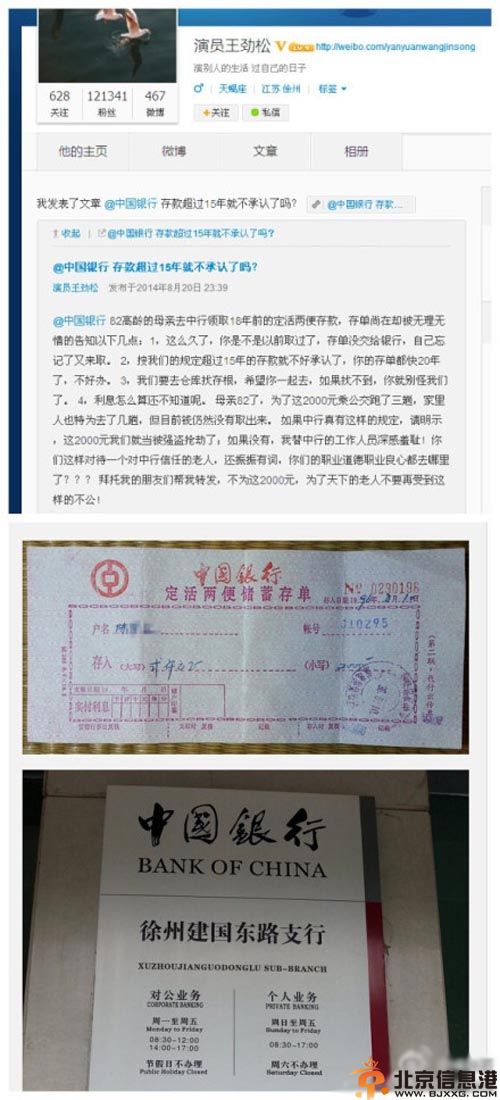 演员王劲松
http://weibo.com/yanyuanwangjinsong
演别人的生活 过自己的日子
天蝎座 江苏 徐州 标签
628 121341 467
关注 粉丝 微博
+关注 私信
他的主页 微博 文章 相册
我发表了文章 @中国银行 存款超过15年就不承认了吗? @中国银行 存款...
收起 @中国银行 存款超过15年就不承认了吗?
@中国银行 存款超过15年就不承认了吗?
演员王劲松 发布于2014年8月20日 23:39
@中国银行 82高龄的母亲去中行领取18年前的定活两便存款,存单尚在却被无理无
情的告知以下几点:1,这么久了,你是不是以前取过了,存单没交给银行,自己忘
记了又来取。 2,按我们的规定超过15年的存款就不好承认了,你的存单都快20年
了,不好办。 3,我们要去仓库找存根,希望你一起去,如果找不到,你就别怪我们
了。 4,利息怎么算还不知道呢。 母亲82了,为了这2000元乘公交跑了三趟,家里
人也特为去了几趟,但目前被仍然没有取出来。 如果中行真有这样的规定,请明示
,这2000元我们就当被强盗抢劫了;如果没有,我替中行的工作人员深感羞耻!你
们这样对待一个对中行信任的老人,还振振有词,你们的职业道德职业良心都去哪里
了??? 拜托我的朋友们帮我转发,不为这2000元,为了天下的老人不要再受到这
样的不公!
中国银行
定活两便储蓄存单
No 0290196
户名
账号 J10295
存入 (大写) (小写)
实付利息
中國銀行
BANK OF CHINA
徐州建国东路支行
XUZHOUJIANGUODONGLU SUB-BRANCH
对公业务 个人业务
CORPORATE BANKING PRIVATE BANKING
周一至周五 周日至周五
Monday to Friday Sunday to Friday
08:30-12:00 08:30-17:00
14:00-17:00
节假日不办理 周六不办理
Public Holiday Closed Saturday Closed
北京信息港
WWW.BJXXG.COM